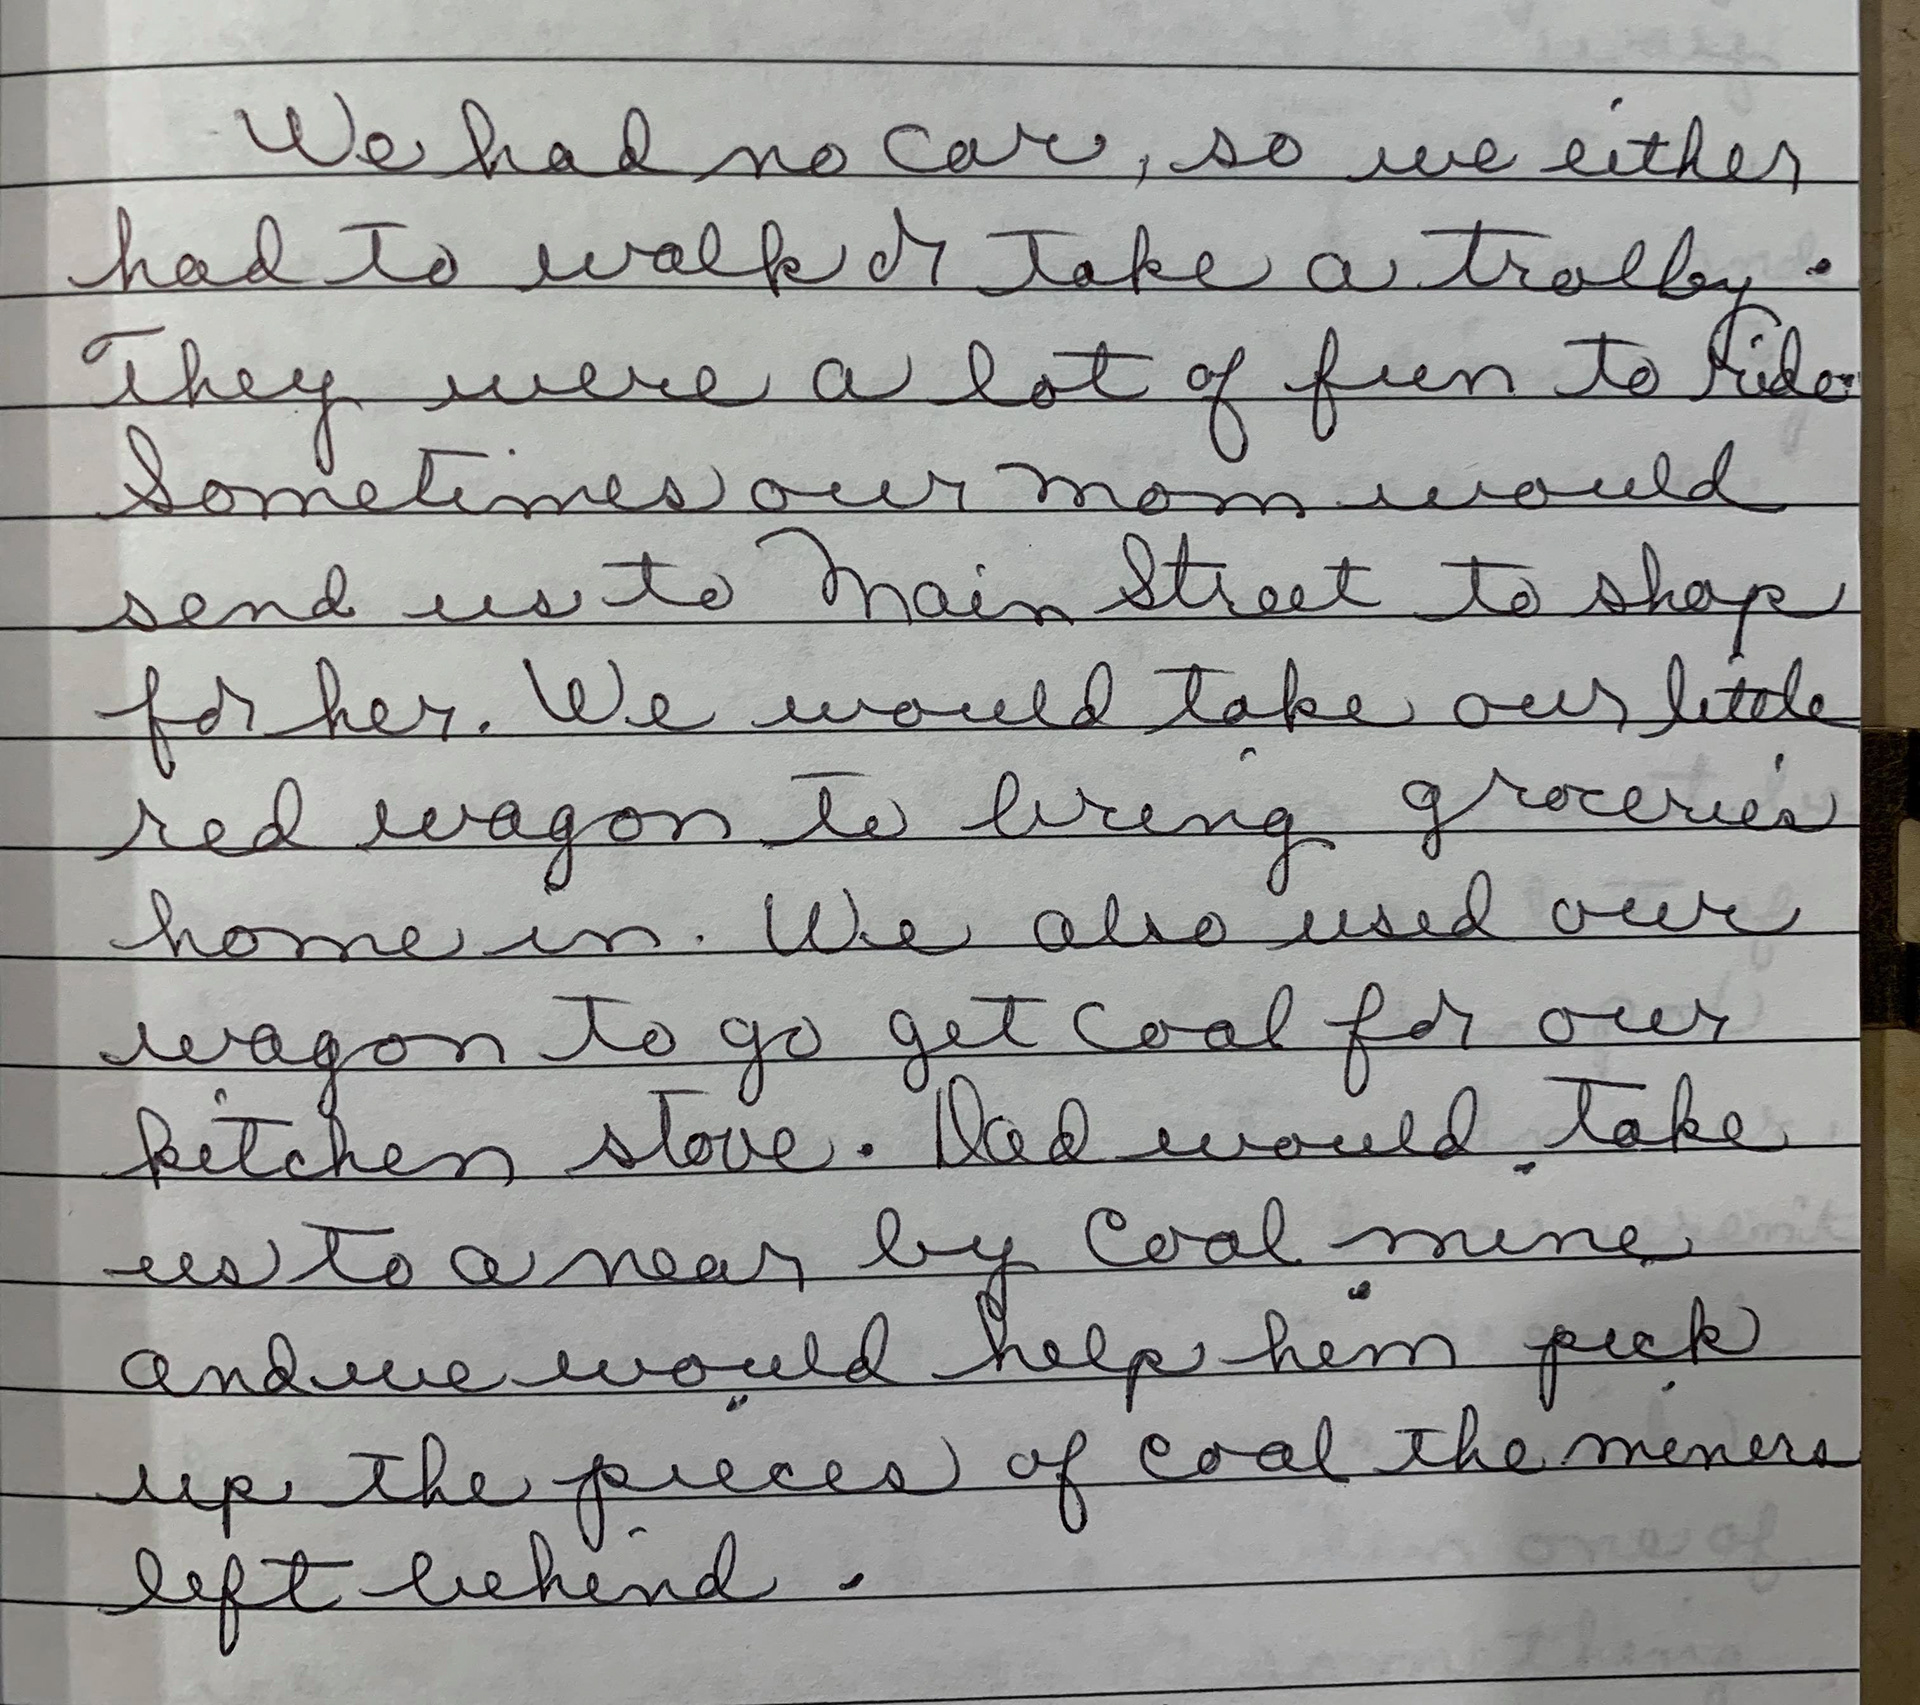 We had no car, so we either
had to walk or take a trolley.
They were a lot of fun to ride.
Sometimes our mom would
send us to Main Street to shop
for her. We would take our little
red wagon to bring groceries
home in. We also used our
wagon to go get coal for our
kitchen stove. Dad would take
us to a near by coal mine
and we would help him pick
up the pieces of coal the miners
left behind.